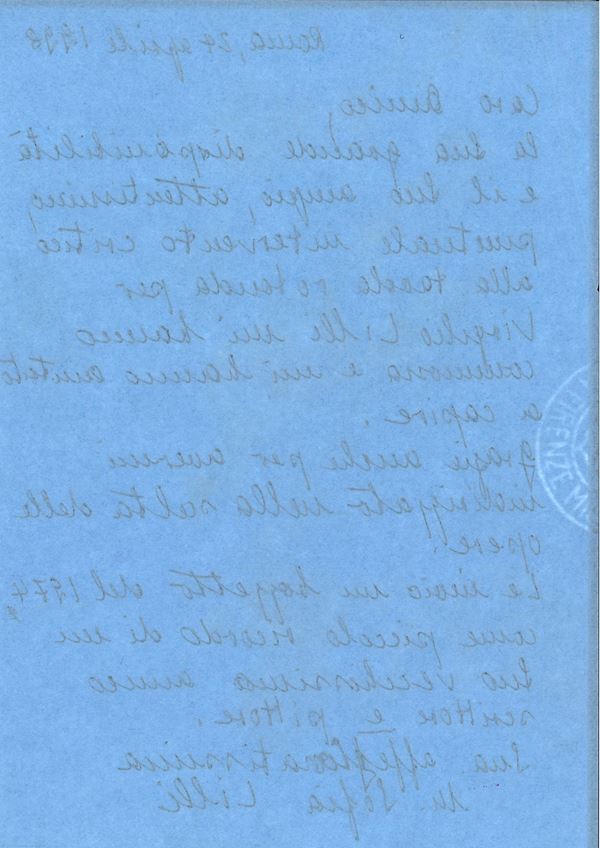 Roma, 24 aprile 1998
Caro Amico,
la Sua grande disponibilità
e il Suo ampio, attentissimo,
puntuale intervento critico
alla tavola rotonda per
Virgilio Lilli mi hanno
commossa e mi hanno aiutato
a capire.
Grazie anche per avermi
indirizzato nella scelta delle
opere.
Le invio un bozzetto del 1974
come piccolo ricordo di un
Suo vecchissimo amico
scrittore e pittore.
Sua affezionatissima
M. Sofia Lilli
FIRENZE